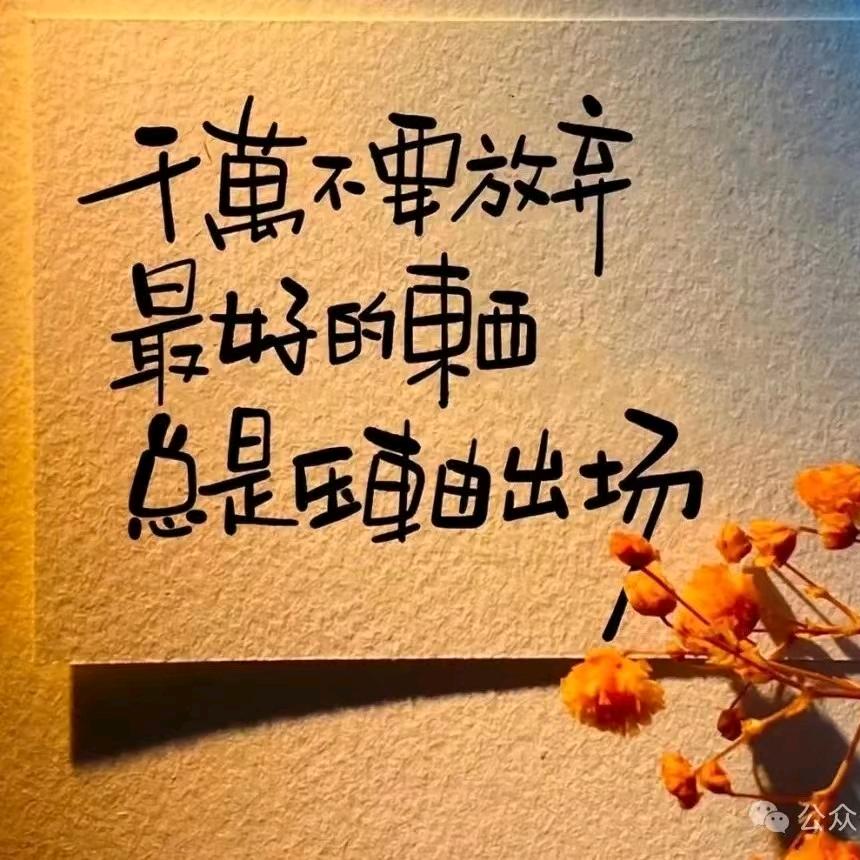 千萬不要放弃
最好的東西
总是压軸出场
公众